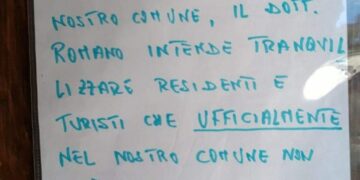 NOSTRO COMUNE, IL DOTT.
ROMANO INTENDE TRANQUIL
LIZZARE RESIDENTI E
TURISTI CHE UFFICIALMENTE
NEL NOSTRO COMUNE NON